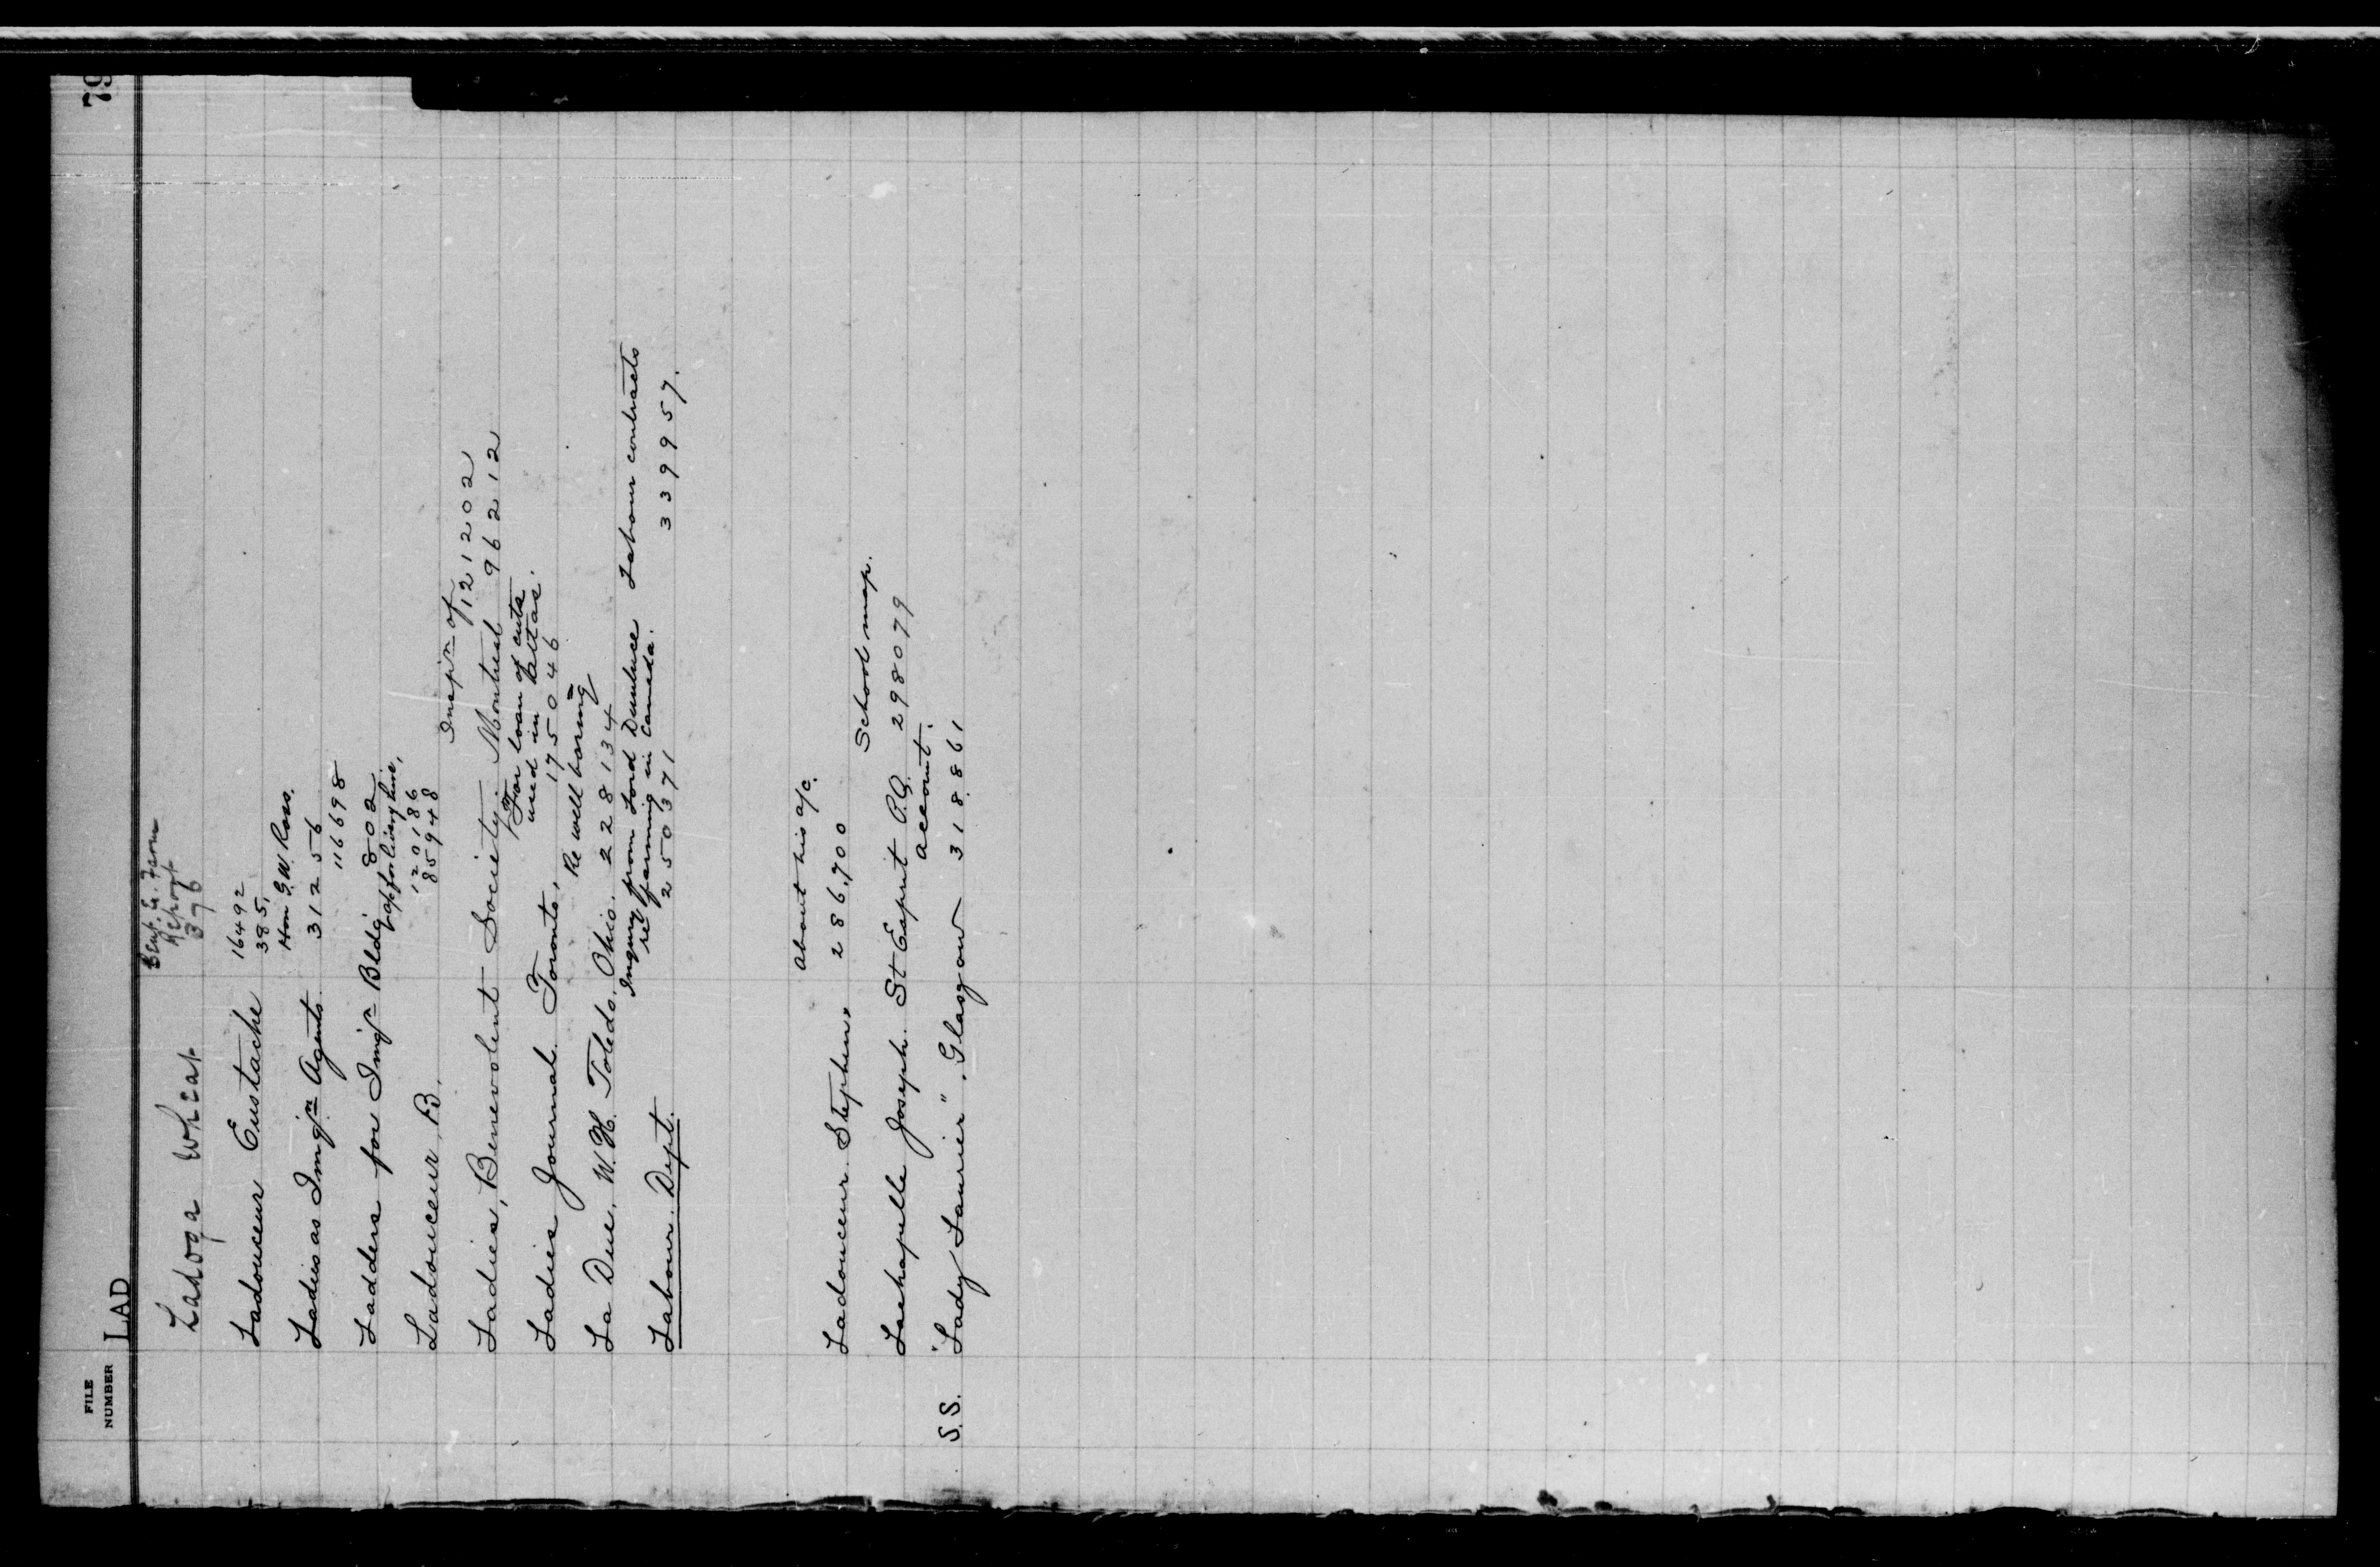 79
FILE
NUMBER
LAD
Exp. Farm
Report
Ladoga Wheat 376
16492
Ladouceur Eustache 385,
Hon G.W. Ross.
Ladies as Imgn Agents 31256
116698
Ladders for Imgn Bldg 802
app for livery hire,
120186
Ladouceur, B. 85948
Inspn of 121202
Ladies, Benevolent Society. Montreal 96 2 12
For loan of cuts
used in Atlas.
Ladies Journal. Toronto, 175046
Re well boring
La Due, W.H. Toledo. Ohio. 228134
Inquiry from Lord Dunluce Labour contracts
re farming in Canada.
Labour. Dept. 250371 339957.
About his a/c.
Ladouceur. Stephen, 286,700
School map.
Lachapelle Joseph. St Esprit P.Q. 298079
account.
S.S. "Lady Laurier", Glasgow 318861